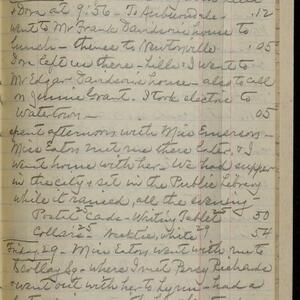 & Don at 9:56 - To Auburndale. .12
went to Mr Frank Davidson's home to
lunch - thence to Newtonville .05
Don left us there - Lilla & I went to
Mr Edgar Davidson's house - also to call
on Jennie Grant. I took electric to
Watertown - 05
spent afternoon with Miss Emerson -
Miss Eaton met me there later, & I
went home with her. We had supper
in the city & sat in the Public Library
while it rained, all the evening -
Postal Cards - Writing Tablet 50
Collars 25 Necktie, White 29 54
Friday, 29 - Miss Eaton went with me to
Scollay Sq - Where I met Percy Richards
& went out with her to Lynn - had a